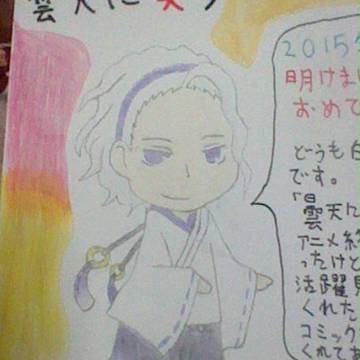 曇天に笑う
2015年
明けま
おめで
どうも白
です。
「曇天に
アニメ終
ったけど
活躍見
くれた
コミック
くれて